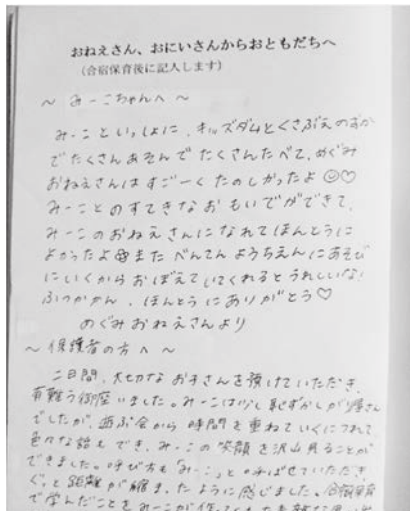 おねえさん、おにいさんからおともだちへ
(合宿保育後に記入します)
～ みーこちゃんへ ～
みーこといっしょに、キッズダムとくさぶえのすか
でたくさんあそんでたくさんたべて、めぐみ
おねえさんはすごーくたのしかったよ☺♡
みーことのすてきなおもいでができて、
みーこのおねえさんになれてほんとうに
よかったよ またべんてんようちえんにあそび
にいくからおぼえていてくれるとうれしいな!
ふつかかん、ほんとうにありがとう♡
めぐみおねえさんより
～ 保護者の方へ ～
二日間、大切なお子さんを預けていただき、
有難う御座いました。みーこは少し恥ずかしが り屋さん
でしたが、遊ぶ会から時間を重ねていくにつれて
色々な話もでき、みーこの笑顔を沢山見ることが
できました。呼び方も「みーこ」と呼ばせていただき
ぐっと距離が縮まったように感じました。合宿保育
で学んだことをみーこが